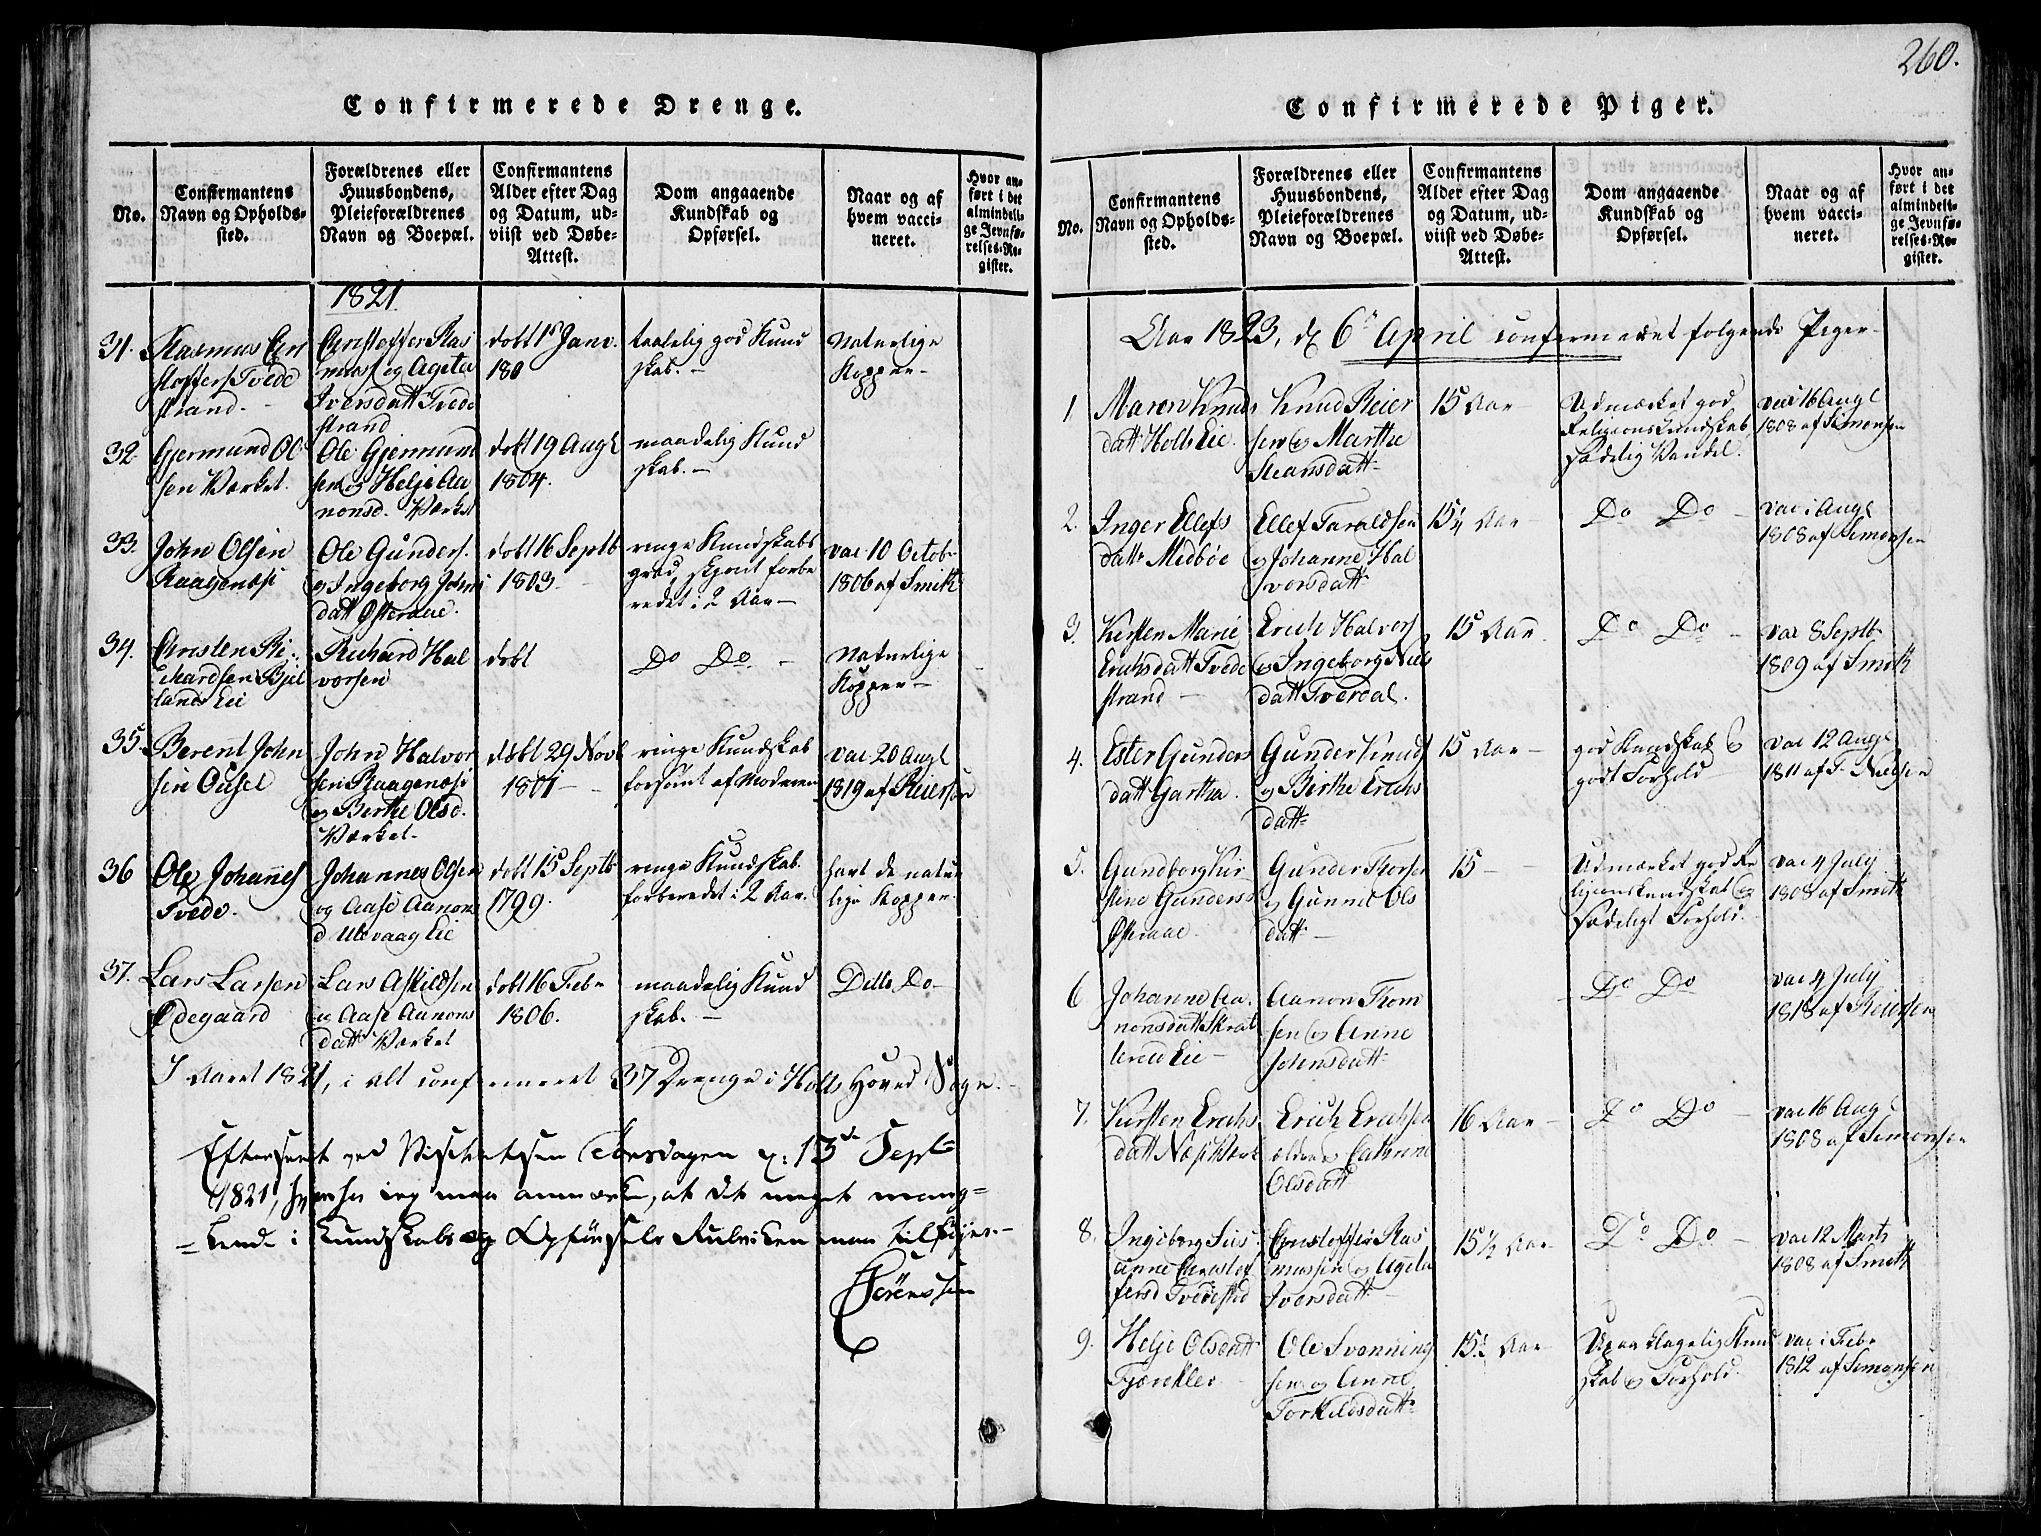 260.
Confirmerede Drenge.
No.
Confirmantens
Navn og Opholds-
sted.
Forældrenes eller
Huusbondens,
Pleieforældrenes
Navn og Boepæl.
Confirmantens
Alder efter Dag
og Datum, ud-
viist ved Døbe-
Attest.
Dom angaaende
Kundskab og
Opførsel.
Naar og af
hvem vacci-
neret.
Hvor an-
ført i det
almindeli-
ge Jevnfø-
relses-Re-
gister.
1821
31.
Rasmus Cri
stoffers Tvede
strand.
Cristoffer Ras
muss og Ageta
Iversdatt Tvede
strand
døbt 1 Janv.
180
taalelig god Kund
skab. -
Naturlige
Kopper -
32.
Gjermund Ol
sen Værket.
Ole Gjermund
sen og Helje Aa
nonsd. Værket
døbt 19 Augl
1804.
maadelig Kund
skab. -
33.
John Olsen
Raagenæs
Ole Gunders.
og Ingeborg Johns
datt Østeraae.
døbt 16 Septb
1803
ringe Kundskabs
grad, skjønt forbe
redet i 2 Aar -
vac 10 Octob
1806 af Smith
34.
Cristen Ri-
chardsen Bjel
lands Eie
Richard Hal
vorsen
døbt
Do Do -
Naturlige
Kopper -
35.
Berent John
sen Ousel
John Halvor
sen Raagenæs
og Berthe Olsd.
Værket.
døbt 29 Novb
1801 -
ringe Kundskab
forsømt af Moderen
vac 20 Augl
1819 af Reiersen
36
Ole Johannes
Tvede.
Johannes Olsen
og Aase Aanons
d Ulevaag Eie
døbt 15 Septb
1799.
ringe Kundskab
forberedet i 2 Aar.
havt de natur
lige Kopper.
37.
Lars Larsen
Ødegaard
Lars Askildsen
og Aase Aanons
datt Værket
døbt 16 Febr
1806.
maadelig Kund
skab. -
Ditto Do -
I Aaret 1821, i alt confirmeret 37 Drenge i Holts Hoved Sogn. -
Efterseet ved Visitatsen Torsdagen d: 13de Septb
1821, hvorhos jeg maa anmærke, at det meget mang=
=lende i Kundskabs og Opførsels Rubriken maa tilføjes. -
Sörenssen
Confirmerede Piger.
No.
Confirmantens
Navn og Opholds-
sted.
Forældrenes eller
Huusbondens,
Pleieforældrenes
Navn og Boepæl.
Confirmantens
Alder efter Dag
og Datum, ud-
viist ved Døbe-
Attest.
Dom angaaende
Kundskab og
Opførsel.
Naar og af
hvem vacci-
neret.
Hvor an-
ført i det
almindeli-
ge Jevnfø-
relses-Re-
gister.
Aar 1823, d 6te April confirmeret følgende Piger -
1
Maren Knuds
datt Holts Eie.
Knud Reier
sen og Marthe
Steansdatt
15 Aar
Udmærket god
Religionskundskab,
sædelig Vandel.
vac 16 Augl
1808 af Simonsen
2
Inger Ellefs
datt Midbøe
Ellef Taraldsen
og Johanne Hal
vorsdatt
15¼ Aar
Do Do -
vac i Augl
1808 af Simonsen
3.
Kirsten Marie
Erichsdatt Tvede
strand -
Erich Halvors
og Ingeborg Niels
datt Tverdal.
15 Aar.
Do Do -
vac 8 Septb
1809 af Smith
4.
Ester Gunders
datt Gartha.
Gunder Knuds
og Birthe Erichs
datt
15 Aar -
god Kundskab &
godt Forhold
vac 12 Augl
1811 af T. Nielsen
5.
Gundborg Kir
stine Gundersd
Østeraae.
Gunder Thorsen
og Gunnil Ols
datt -
15 -
Udmærket god Re
ligionskundskab og
sædeligt Forhold.
vac 4 July
1808 af Smith
6
Johanne Aa-
nonsdatt Skrat
lered Eie -
Aanon Thom
sen og Anne
Johnsdatt
Do Do
vac 4 July
1818 af Reiersen
7.
Kirsten Erichs
datt Næs Værk
Erich Erichsen
ældre og Cathrine
Olsdatt
16 Aar -
Do Do -
vac 16 Augl
1808 af Simonsen
8.
Ingeborg Sus
anne Cristof
fersd Tvedestrd
Cristoffer Ras
mussen og Ageta
Iversdatt
15½ Aar
Do Do -
vac 12 Marts
1808 af Smith
9.
Helje Olsdatt
Fjærekler -
Ole Svenning
sen og Anne
Torkildsdatt
15½ Aar
Upaaklagelig Kund
skab og Forhold.
vac i Febr
1812 af Simonsen